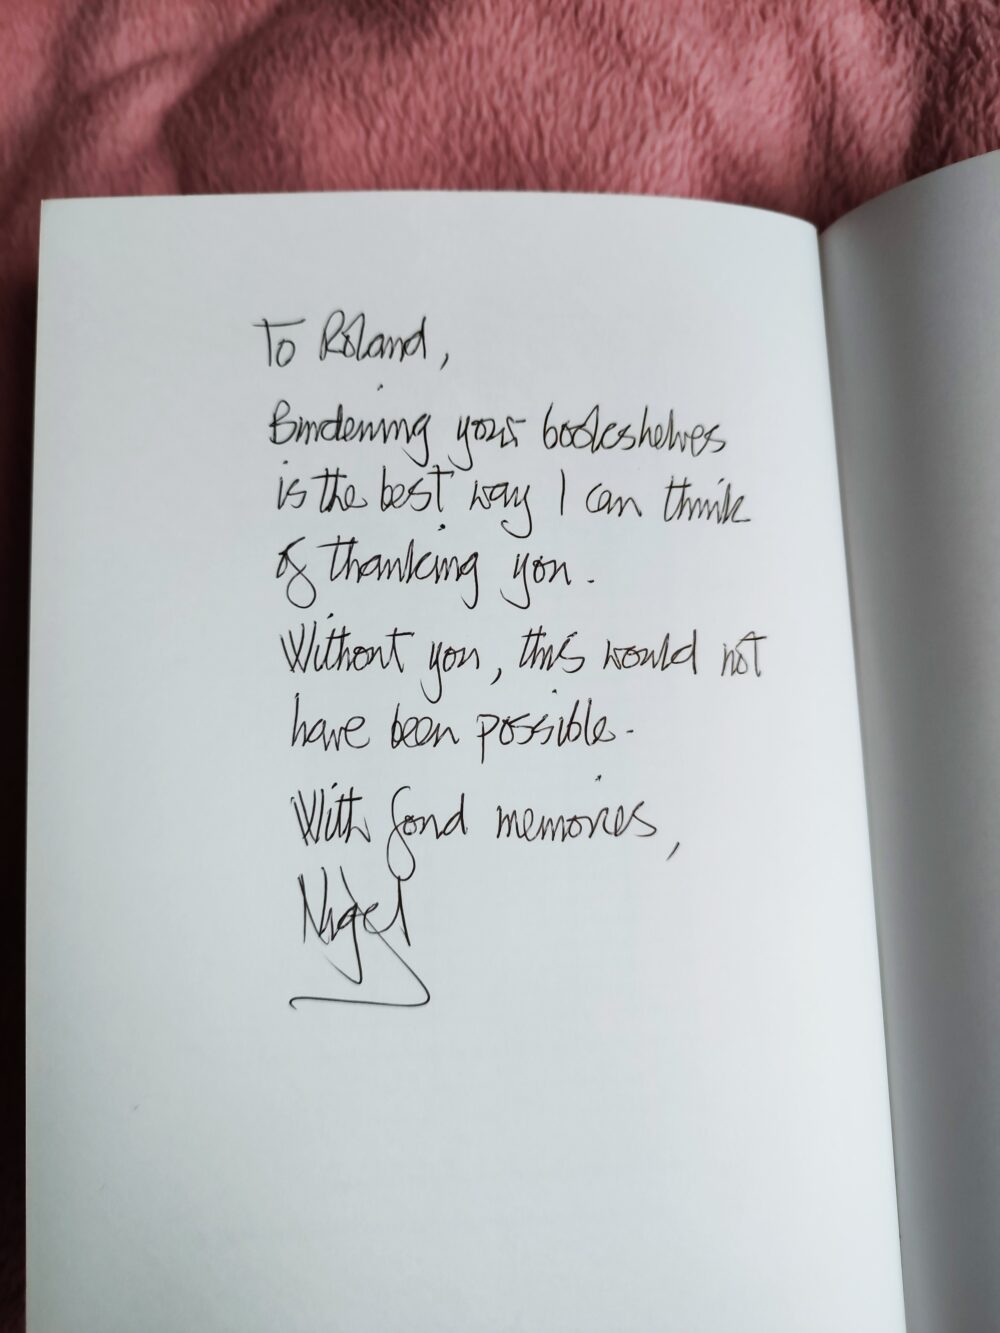 To Roland,
Burdening your bookshelves
is the best way I can think
of thanking you.
Without you, this would not
have been possible.
With fond memories,
Nigel